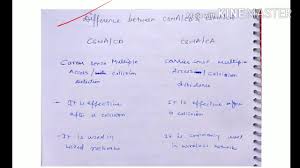 Difference between CSMA/CD &
CSMA/CD
CSMA/CA
Carrier sense Multiple
Access/ collision
detection
Carrier sense Multiple
Access/ collision
avoidance
- It is effective
after a collision
- It is effective
before a collision
- It is used in
wired network
- It is commonly used
in wireless network
KINEMASTER